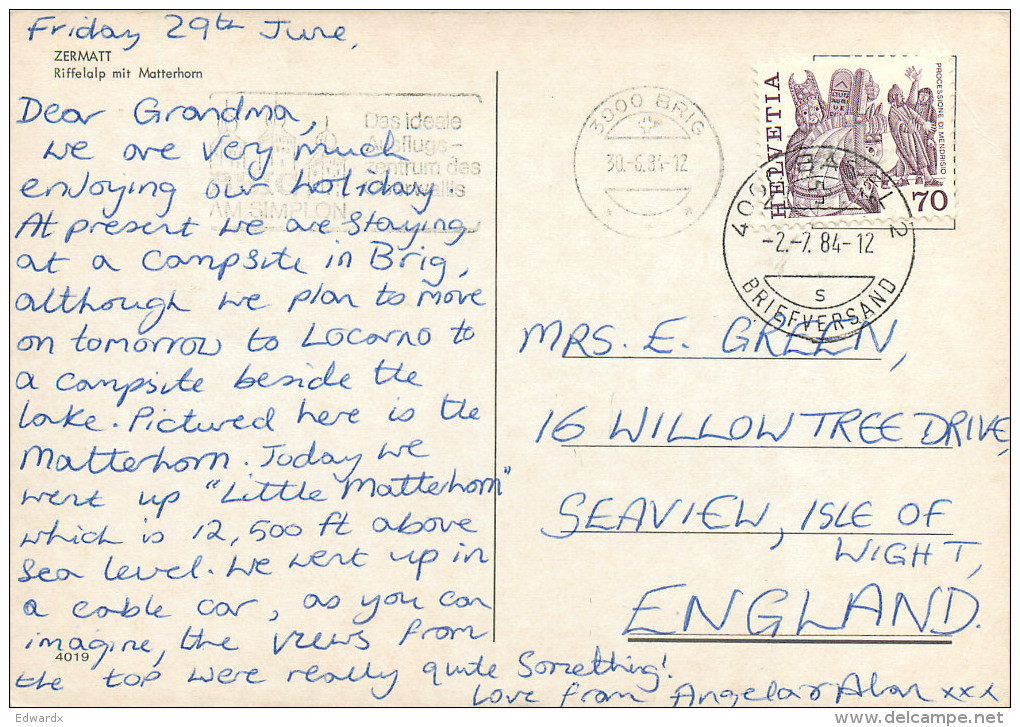 Friday 29th June,
ZERMATT
Riffelalp mit Matterhorn
Dear Grandma,
We are very much
enjoying our holiday.
At present we are staying
at a Campsite in Brig,
although we plan to move
on tomorrow to Locarno to
a campsite beside the
lake. Pictured here is the
Matterhorn. Today we
went up "Little Matterhorn"
which is 12,500 ft above
sea level. We went up in
a cable car, as you can
imagine, the views from
the top were really quite something!
Love from Angela & Alan xxx
4019
Das ideale
Ausflugs-
zentrum des
AM SIMPLON
3000 BRIG
30.-6.84-12
HELVETIA
PROCESSIONE DI MENDRISIO
70
4000 BASEL 2
-2.-7.84-12
S
BRIEFVERSAND
MRS. E. GREEN,
16 WILLOW TREE DRIVE,
SEAVIEW, ISLE OF
WIGHT,
ENGLAND.
Edwardx